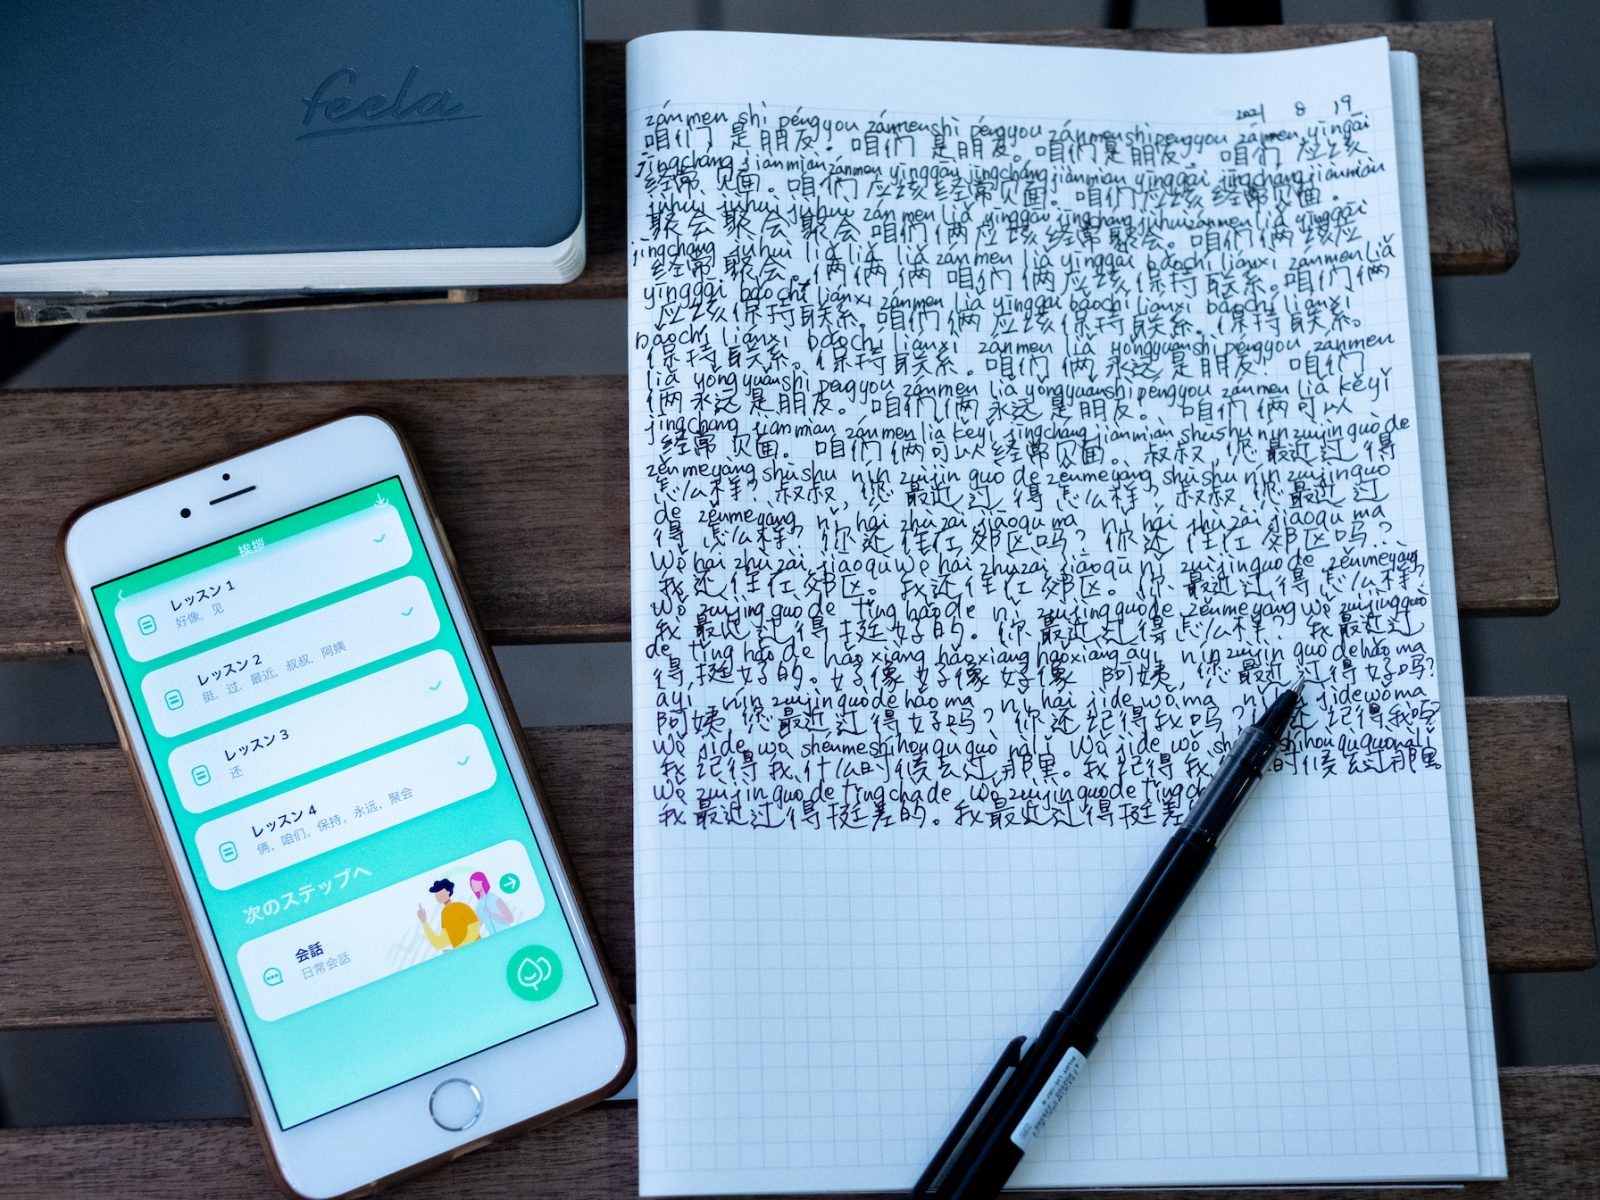 feela
挨拶
レッスン 1
好像, 见
レッスン 2
挺, 过, 最近, 叔叔, 阿姨
レッスン 3
还
レッスン 4
俩, 咱们, 保持, 永远, 聚会
次のステップへ
会話
日常会話
2021 8 19
zánmen shì péngyou zánmenshì péngyou zánmenshìpéngyou zánmen yīnggāi
咱们 是朋友。咱们 是朋友。咱们是朋友。咱们 应该
jīngcháng jiànmiàn zánmen yīnggāi jīngcháng jiànmiàn yīnggāi jīngcháng jiànmiàn
经常 见面。咱们 应该 经常见面。咱们应该 经常见面。
jùhuì jùhuì jùhuì zánmen liǎ yīnggāi jīngcháng jùhuì zánmen liǎ yīnggāi
聚会 聚会 聚会 咱们俩应该 经常聚会。咱们俩该应
jīngcháng jùhuì liǎ liǎ liǎ zánmen liǎ yīnggāi bǎochí liánxì zánmen liǎ
经常 聚会。俩 俩 俩 咱们俩 应该 保持联系。咱们俩
yīnggāi bǎochí liánxì zánmen liǎ yīnggāi bǎochí liánxì bǎochí liánxì
应该保持联系。咱们俩 应该保持联系。保持联系。
bǎochí liánxì bǎochí liánxì zánmen liǎ yǒngyuǎnshì péngyou zánmen
保持联系。保持联系。咱们俩 永远是朋友! 咱们
liǎ yǒngyuǎnshì péngyou zánmen liǎ yǒngyuǎnshì péngyou zánmen liǎ kěyǐ
俩永远是朋友。咱们俩永远是朋友。咱们俩可以
jīngcháng jiànmiàn zánmen liǎ kěyǐ jīngcháng jiànmiàn shūshu nín zuìjìn guò de
经常 见面。咱们俩可以经常见面。叔叔,您最近过得
zěnmeyàng shūshu nín zuìjìn guò de zěnmeyàng shūshu nín zuìjìn guò
怎么样? 叔叔,您 最近过得怎么样? 叔叔,您最近过
de zěnmeyàng nǐ hái zhùzài jiāoqū ma nǐ hái zhùzài jiāoqū ma
得 怎么样? 你还住在郊区吗? 你还住在郊区吗?
Wǒ hái zhùzài jiāoqū Wǒ hái zhùzài jiāoqū nǐ zuìjìn guò de zěnmeyàng
我还住在郊区。我还住在郊区。你最近过得怎么样?
Wǒ zuìjìn guò de tǐng hǎo de nǐ zuìjìn guò de zěnmeyàng wǒ zuìjìn guò
我最近过得挺好的。你最近过得怎么样? 我最近过
de tǐng hǎo de hǎoxiàng hǎoxiàng hǎoxiàng āyí nín zuìjìn guò de hǎo ma
得挺好的。好像 好像 好像 阿姨,您最近过得好吗?
āyí nín zuìjìn guò de hǎo ma nǐ hái jìde wǒ ma jìde wǒ ma
阿姨 您最近过得好吗? 你还记得我吗? 还记得我吗?
Wǒ jìde wǒ shénmeshíhou qù guò nàlǐ Wǒ jìde wǒ shíhou qù guò nàlǐ
我记得我什么时候去过那里。我记得我 时候去过那里
Wǒ zuìjìn guò de tǐng chà de wǒ zuìjìn guò de tǐng ch
我最近过得挺差的。我最近过得挺差